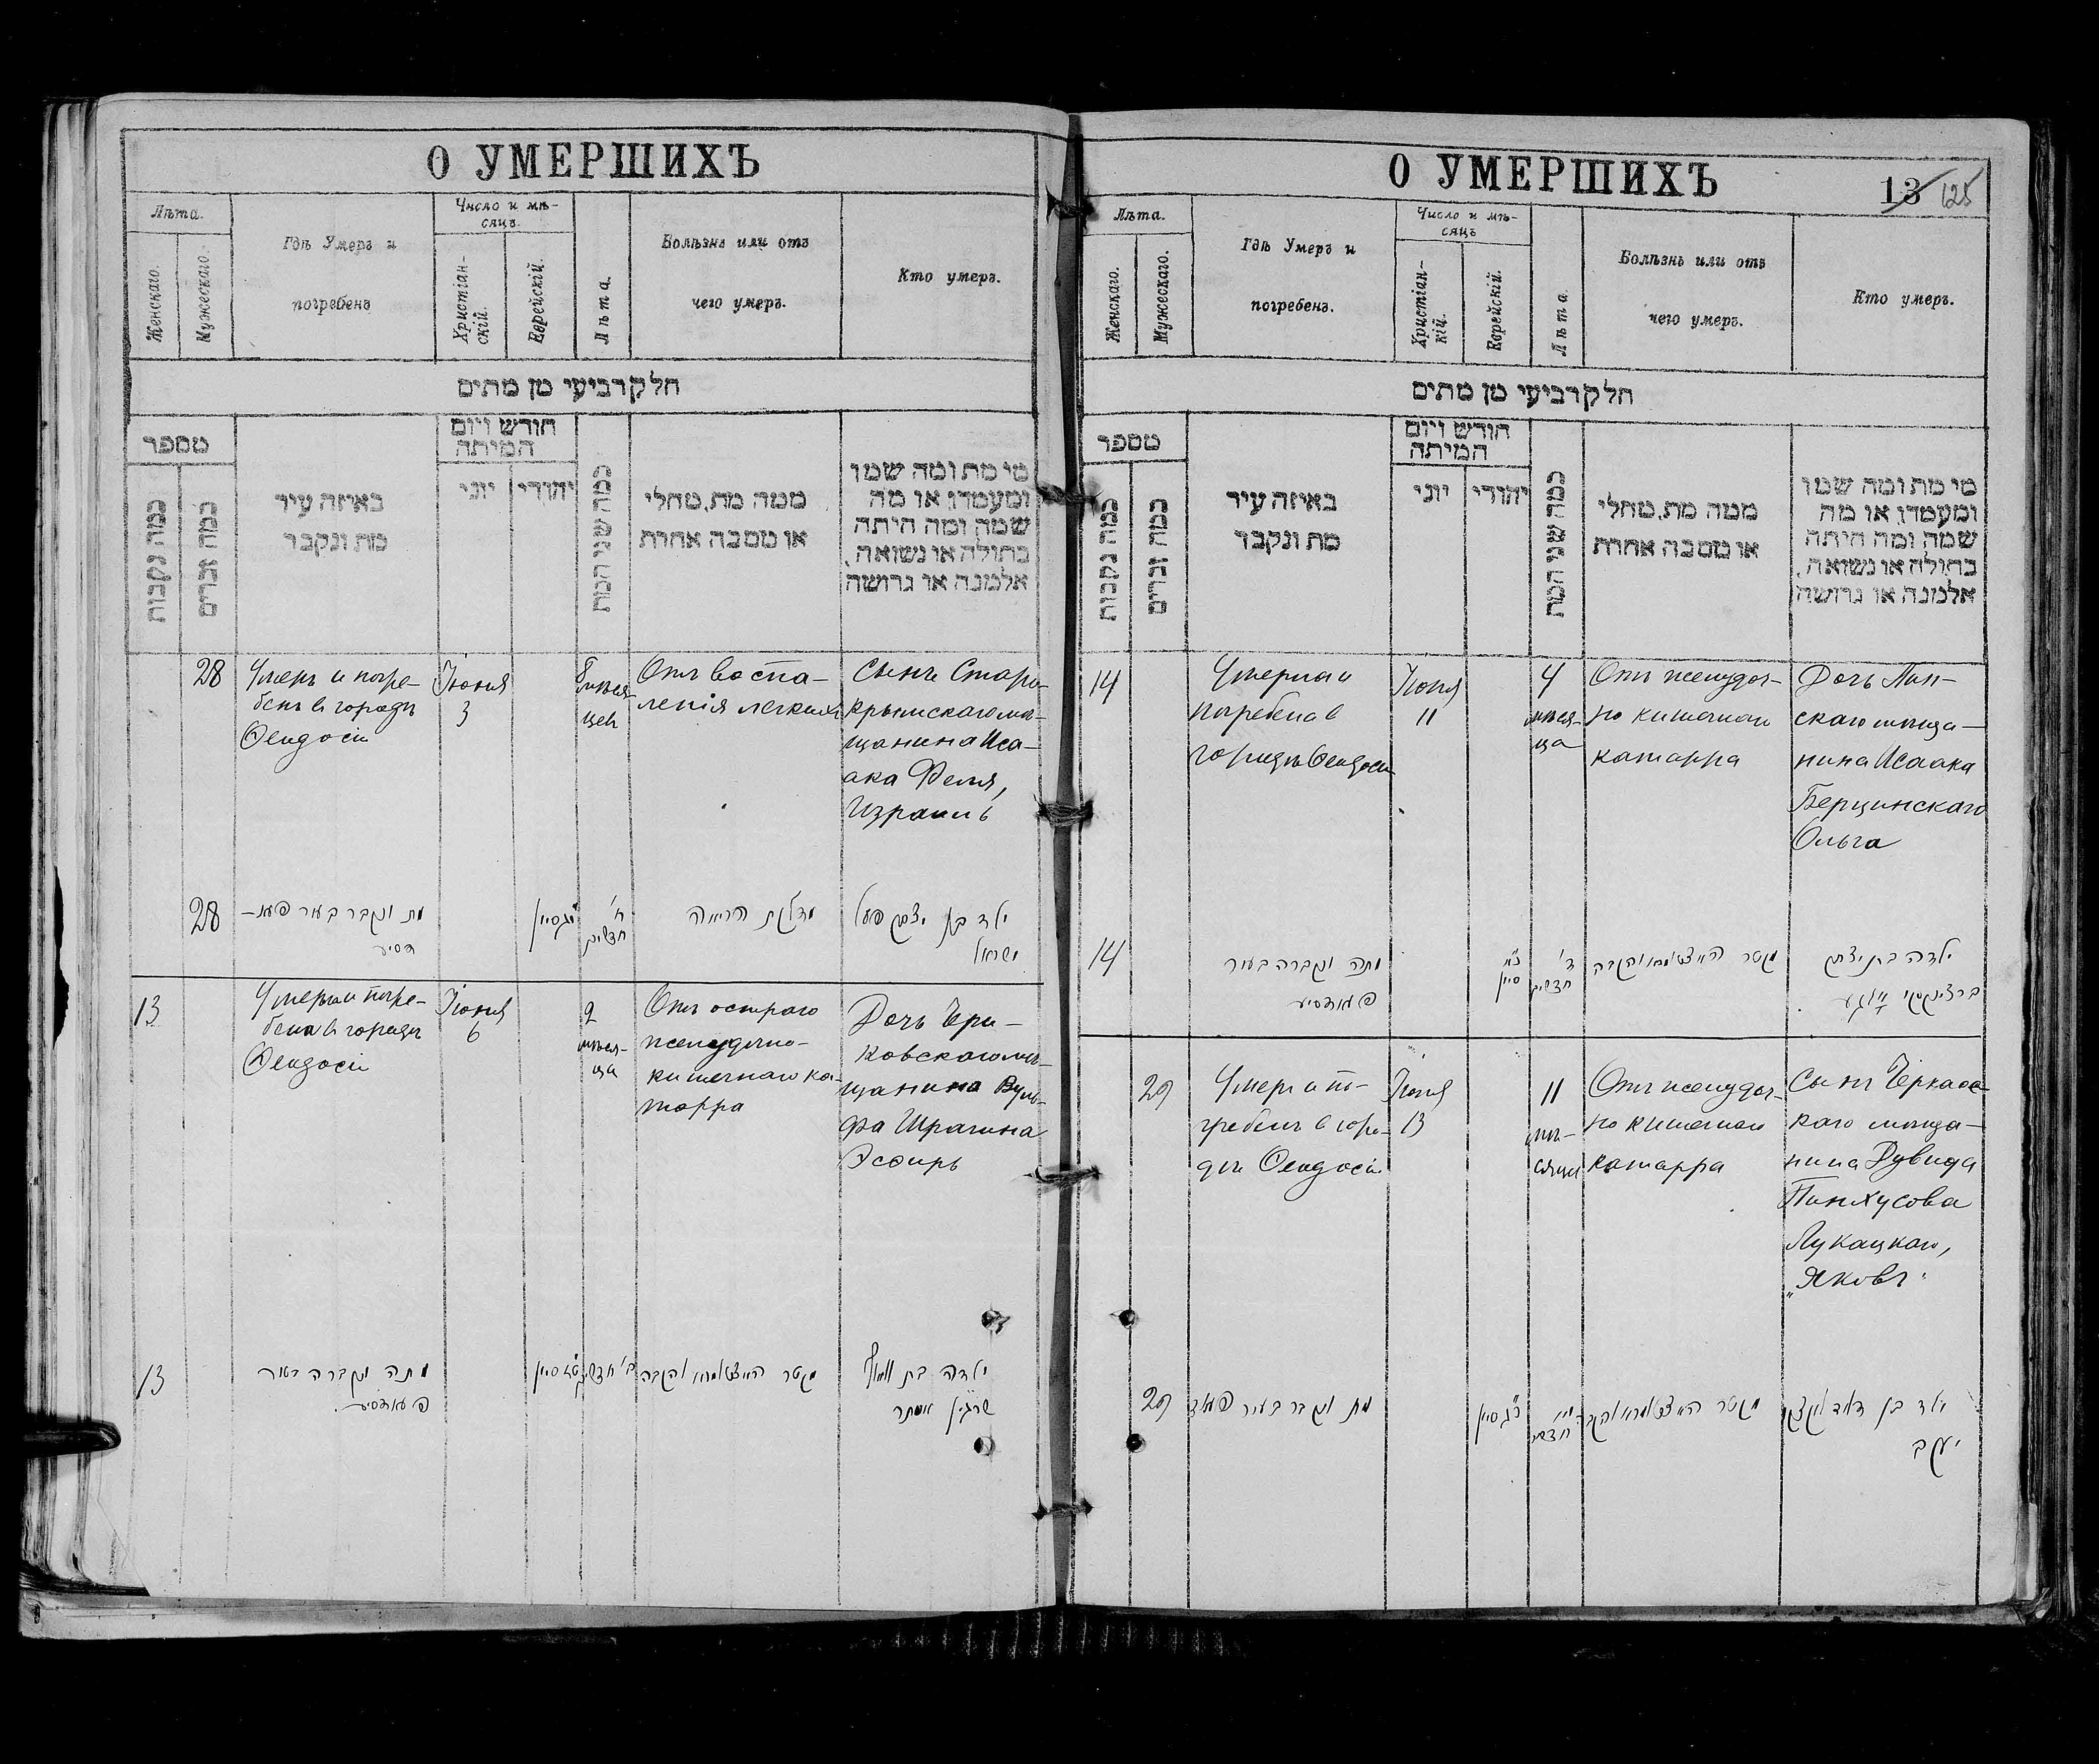 О УМЕРШИХЪ
Лѣта.
Женскаго.
Мужескаго.
Гдѣ Умеръ и
погребенъ
Число и мѣ-
сяцъ.
Христіан-
скій.
Еврейскій.
Лѣта.
Болѣзнь или отъ
чего умеръ.
Кто умеръ.
חלק רביעי מן מתים
מספר
כמה נקבות
כמה זכרים
באיזה עיר
מת ונקבר
חודש ויום
המיתה
יוני
יהודי
כמה שני המת
ממה מת, מחלי
או מסבה אחרת
מי מת ומה שמו
ומעמדו, או מה
שמה ומה היתה
בתולה או נשואה,
אלמנה או גרושה
28
Умеръ и погре-
бенъ въ городѣ
Ѳеодосіи
Іюня
3
8 мѣся-
цев
Отъ воспа-
ленія легкихъ
Сынъ Старо-
крымскаго мѣ-
щанина Иса-
ака Феля,
Израиль
28
מת ונקבר בעיר פעא-
דסיע
סיון
ח'
חדשים
מדלקת הריאה
ילד בן יצחק פעל
ישראל
13
Умерла и погре-
бена въ городѣ
Ѳеодосіи
Іюня
6
2
мѣся-
ца
Отъ остраго
желудочно-
кишечнаго ка-
тарра
Дочь Чери-
ковскаго мѣ-
щанина Вуль-
фа Шрагина
Эсѳирь
13
מתה ונקברה בעיר
פעאדסיע
סיון
ב' חדשים
ילדה בת וואלף
שרגין אסתר
О УМЕРШИХЪ
13 125
Лѣта.
Женскаго.
Мужескаго.
Гдѣ Умеръ и
погребенъ.
Число и мѣ-
сяцъ
Христіан-
кій.
Еврейскій.
Лѣта.
Болѣзнь или отъ
чего умеръ.
Кто умеръ.
חלק רביעי מן מתים
מספר
כמה נקבות
כמה זכרים
באיזה עיר
מת ונקבר
חודש ויום
המיתה
יוני
יהודי
כמה שני המת
ממה מת, מחלי
או מסבה אחרת
מי מת ומה שמו
ומעמדו, או מה
שמה ומה היתה
בתולה או נשואה,
אלמנה או גרושה
14
Умерла и
погребена в
городѣ Ѳеодосіи
Іюня
11
4
мѣся-
ца
Отъ желудоч-
но кишечнаго
катарра
Дочь Пин-
скаго мѣща-
нина Исаака
Берцинскаго
Ольга
14
מתה ונקברה בעיר
פעאדסיע
כ"א
סיון
ד'
חדשים
ילדה בת יצחק
ברצינסקי
29
Умеръ и по-
гребенъ в горо-
дѣ Ѳеодосіи
Іюня
13
11
мѣ-
сяцев
Отъ желудоч-
но кишечнаго
катарра
Сынъ Черкас-
каго мѣща-
нина Дувида
Пинхусова
Лукацкаго,
„Яковъ"
29
מת ונקבר בעיר פעאד
כ"ג סיון
י"א
חדשים
ילד בן דוד לוקצקי
יעקב